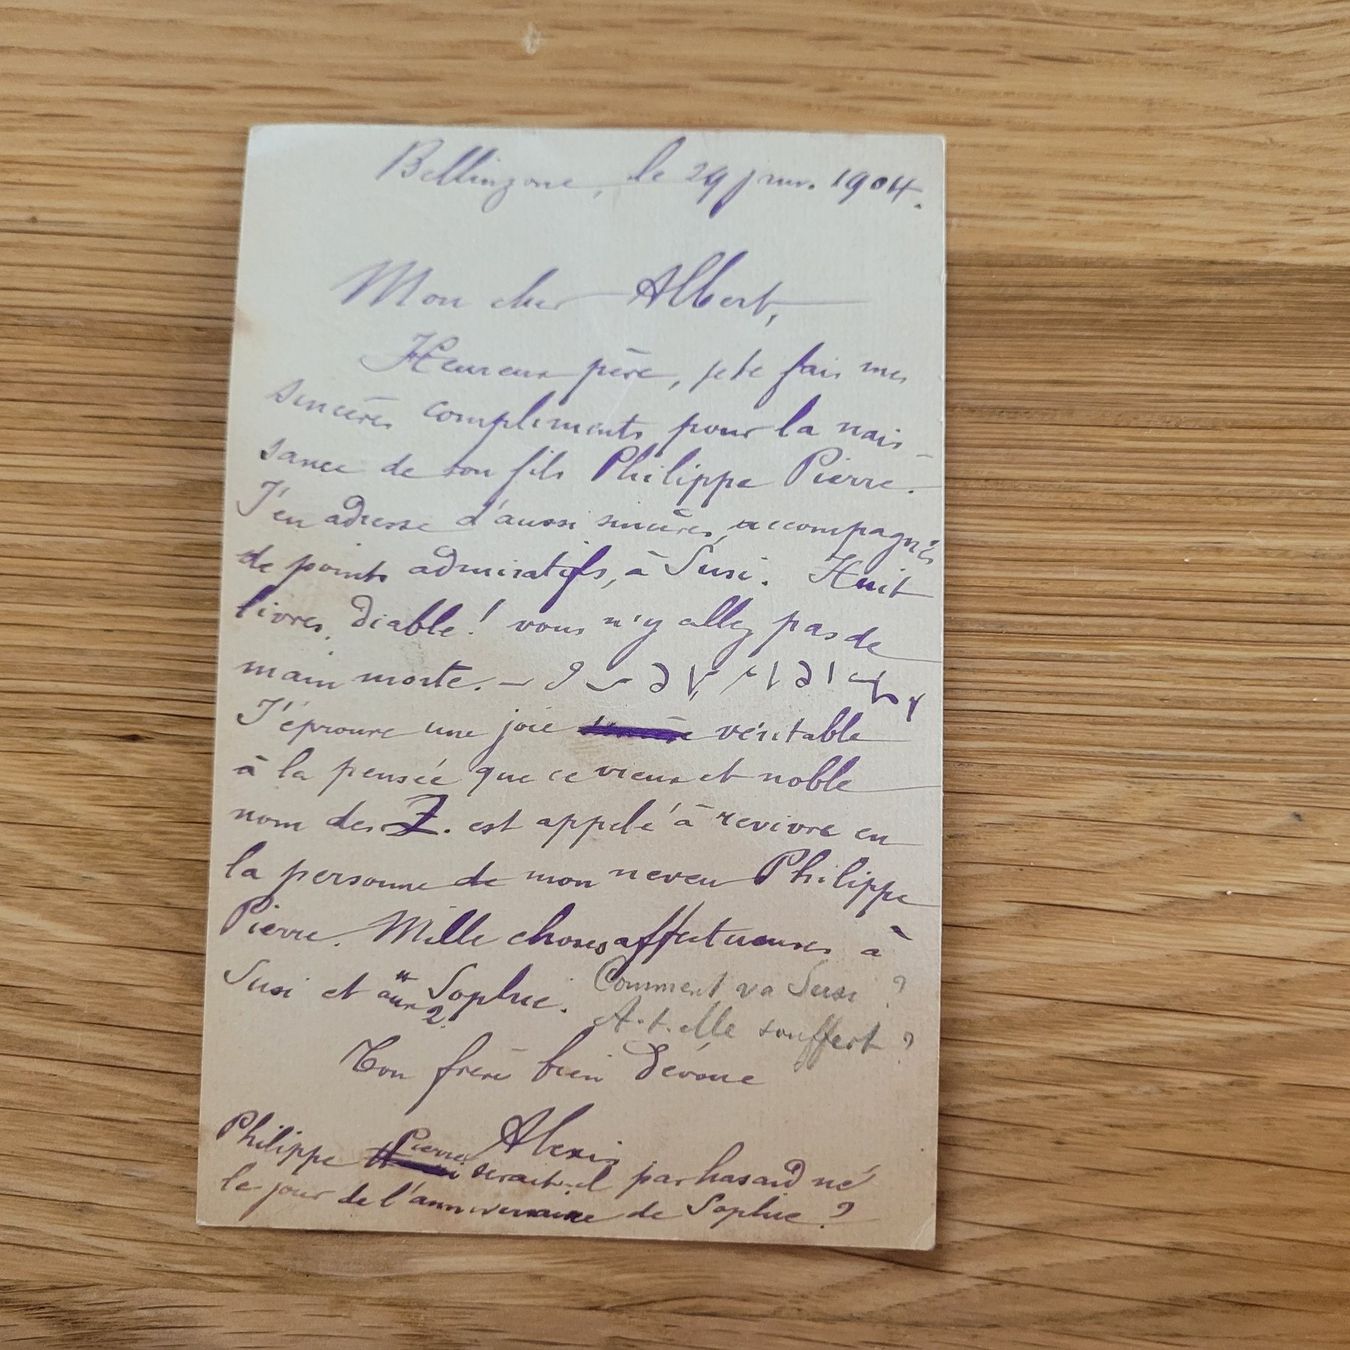 Bellinzone, le 29 janv. 1904.
Mon cher Albert,
Heureux père, je te fais mes
sincères compliments pour la nais-
sance de ton fils Philippe Pierre.
J'en adresse d'aussi sincères, accompagnés
de points admiratifs, à Susi. Huit
livres, diable! vous n'y allez pas de
main morte. —
J'éprouve une joie véritable
à la pensée que ce vieux et noble
nom des Z. est appelé à revivre en
la personne de mon neveu Philippe
Pierre. Mille choses affectueuses à
Susi et aux 2 "Sophie. Comment va Susi?
A-t-elle souffert?
Ton frère bien dévoué
Alexis
Philippe Pierre serait-il par hasard né
le jour de l'anniversaire de Sophie?